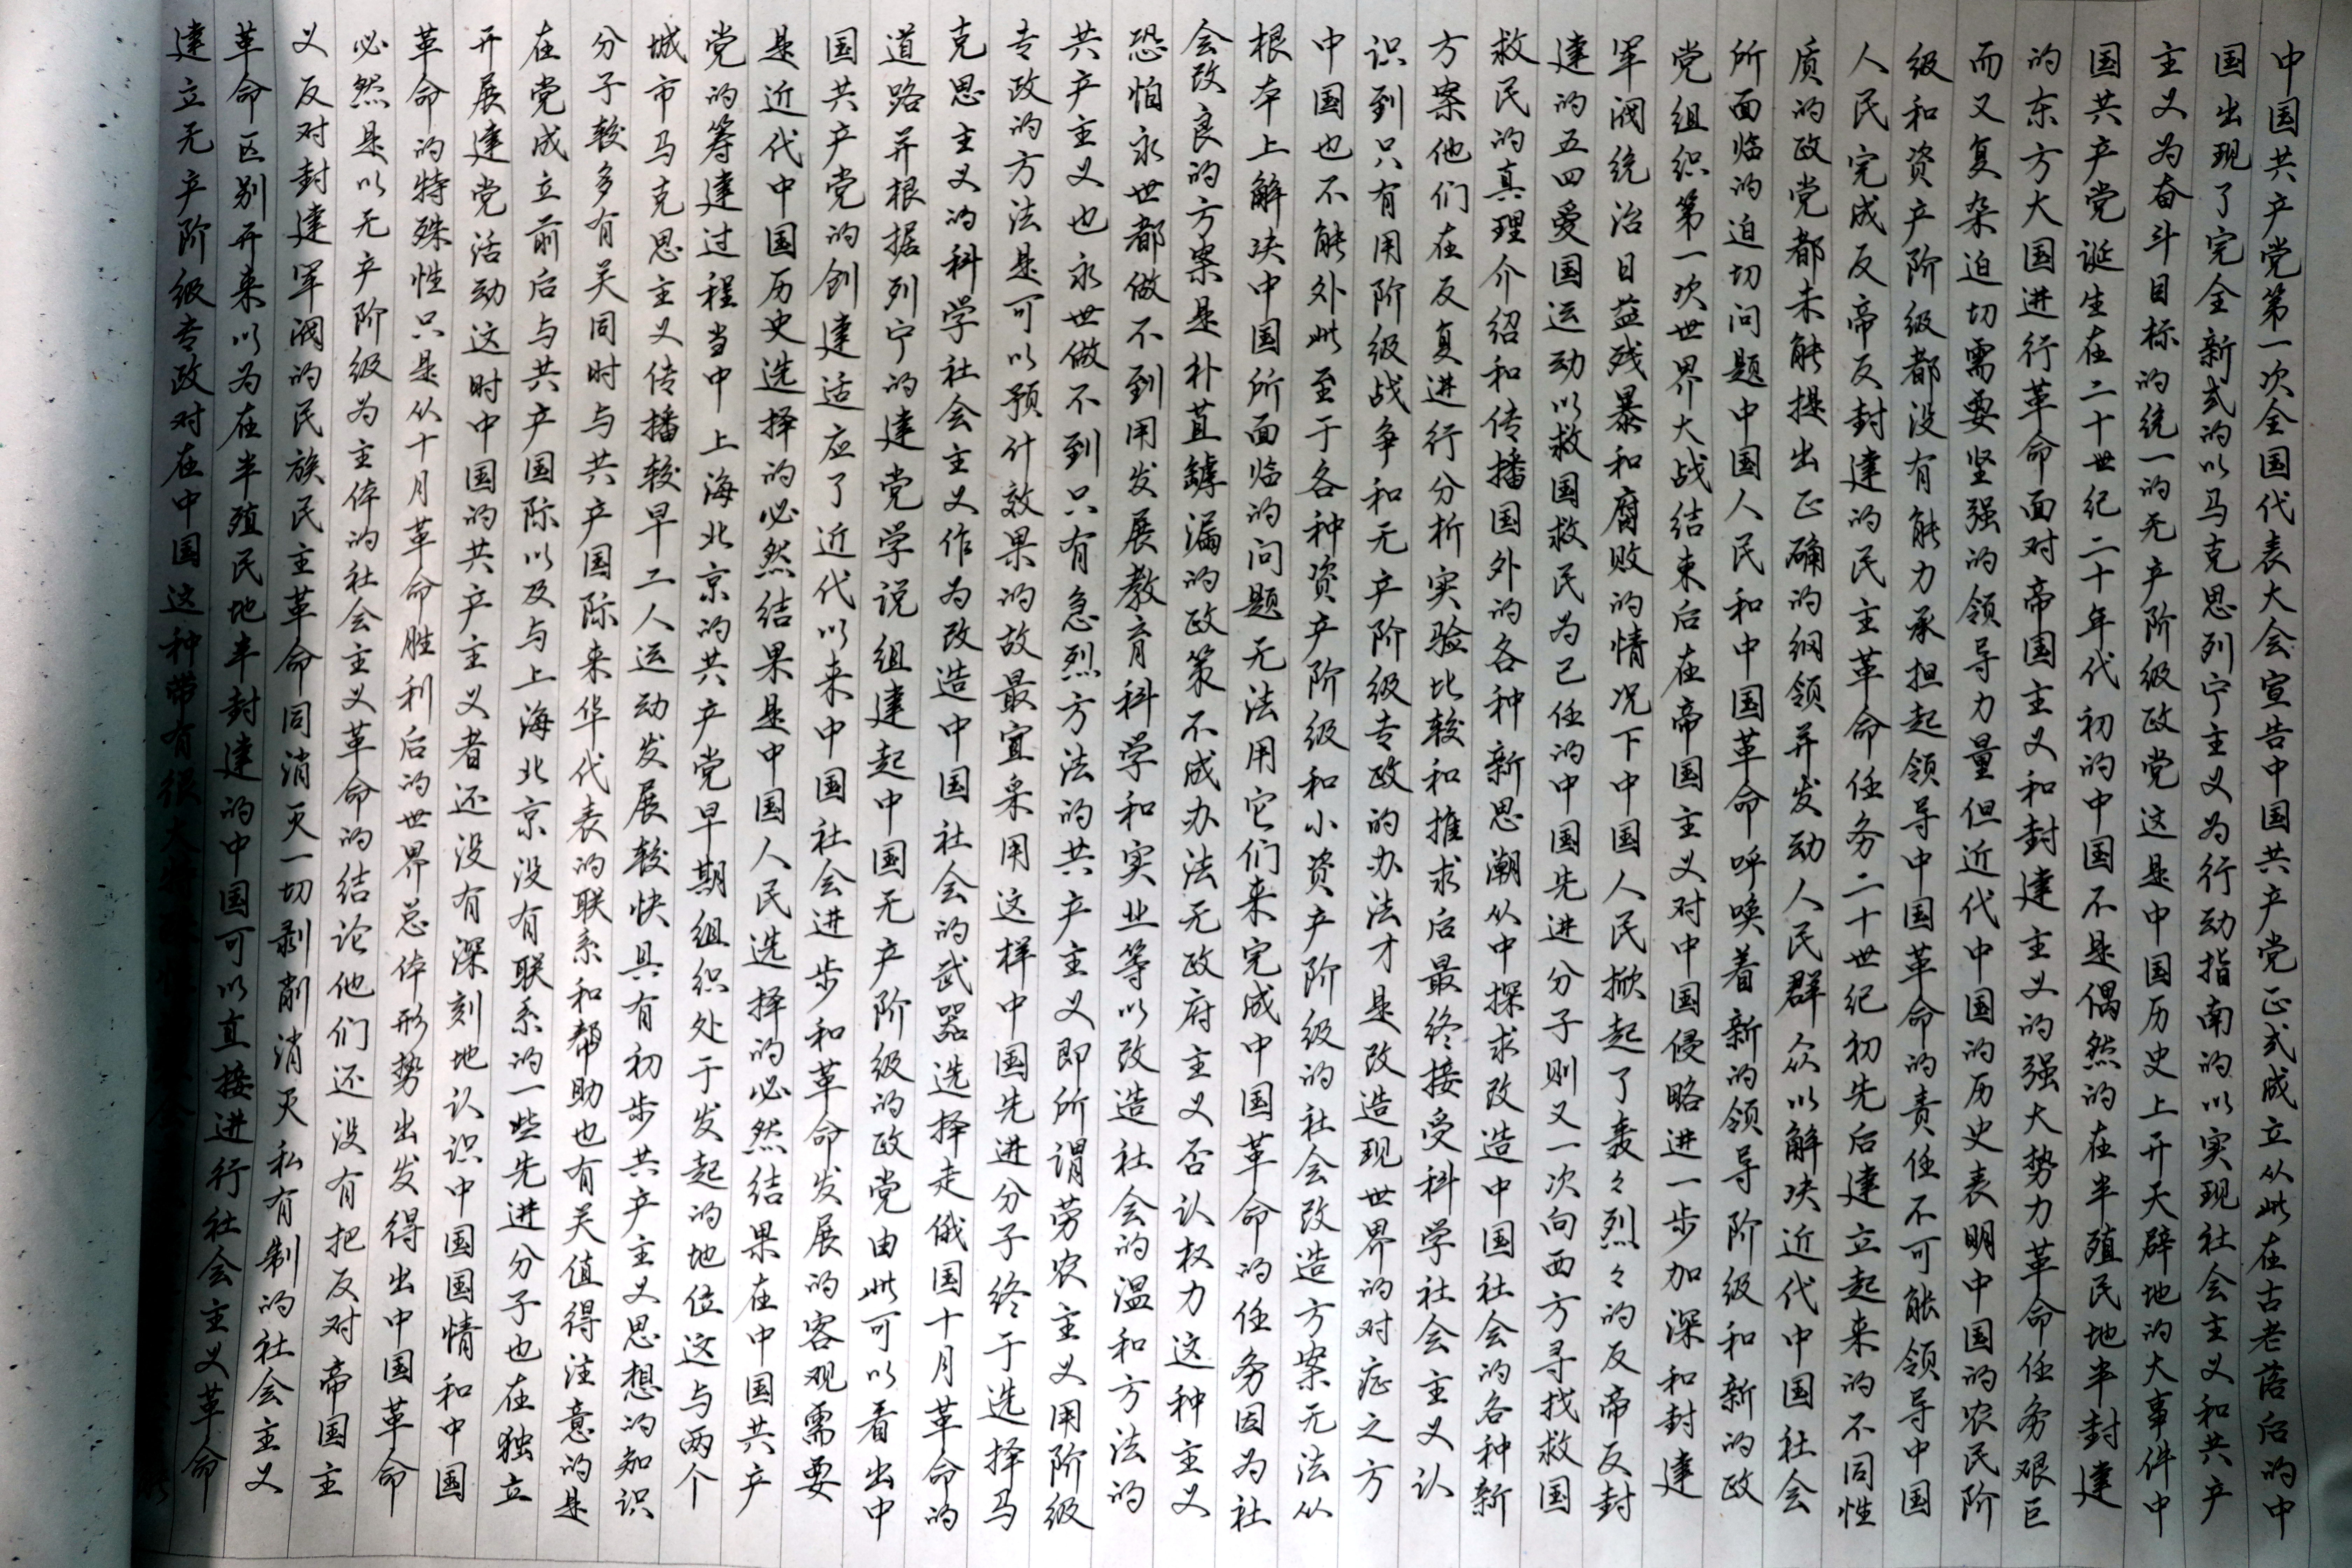 中国共产党第一次全国代表大会宣告中国共产党正式成立从此在古老落后的中
国出现了完全新式的以马克思列宁主义为行动指南的以实现社会主义和共产
主义为奋斗目标的统一的无产阶级政党这是中国历史上开天辟地的大事件中
国共产党诞生在二十世纪二十年代初的中国不是偶然的在半殖民地半封建
的东方大国进行革命面对帝国主义和封建主义的强大势力革命任务艰巨
而又复杂迫切需要坚强的领导力量但近代中国的历史表明中国的农民阶
级和资产阶级都没有能力承担起领导中国革命的责任不可能领导中国
人民完成反帝反封建的民主革命任务二十世纪初先后建立起来的不同性
质的政党都未能提出正确的纲领并发动人民群众以解决近代中国社会
所面临的迫切问题中国人民和中国革命呼唤着新的领导阶级和新的政
党组织第一次世界大战结束后在帝国主义对中国侵略进一步加深和封建
军阀统治日益残暴和腐败的情况下中国人民掀起了轰々烈々的反帝反封
建的五四爱国运动以救国救民为己任的中国先进分子则又一次向西方寻找救国
救民的真理介绍和传播国外的各种新思潮从中探求改造中国社会的各种新
方案他们在反复进行分析实验比较和推求后最终接受科学社会主义认
识到只有用阶级战争和无产阶级专政的办法才是改造现世界的对症之方
中国也不能外此至于各种资产阶级和小资产阶级的社会改造方案无法从
根本上解决中国所面临的问题无法用它们来完成中国革命的任务因为社
会改良的方案是朴苴罅漏的政策不成办法无政府主义否认权力这种主义
恐怕永世都做不到用发展教育科学和实业等以改造社会的温和方法的
共产主义也永世做不到只有急烈方法的共产主义即所谓劳农主义用阶级
专政的方法是可以预计效果的故最宜采用这样中国先进分子终于选择马
克思主义的科学社会主义作为改造中国社会的武器选择走俄国十月革命的
道路并根据列宁的建党学说组建起中国无产阶级的政党由此可以看出中
国共产党的创建适应了近代以来中国社会进步和革命发展的客观需要
是近代中国历史选择的必然结果是中国人民选择的必然结果在中国共产
党的筹建过程当中上海北京的共产党早期组织处于发起的地位这与两个
城市马克思主义传播较早工人运动发展较快具有初步共产主义思想的知识
分子较多有关同时与共产国际来华代表的联系和帮助也有关值得注意的是
在党成立前后与共产国际以及与上海北京没有联系的一些先进分子也在独立
开展建党活动这时中国的共产主义者还没有深刻地认识中国国情和中国
革命的特殊性只是从十月革命胜利后的世界总体形势出发得出中国革命
必然是以无产阶级为主体的社会主义革命的结论他们还没有把反对帝国主
义反对封建军阀的民族民主革命同消灭一切剥削消灭私有制的社会主义
革命区别开来以为在半殖民地半封建的中国可以直接进行社会主义革命
建立无产阶级专政对在中国这种带有很大特